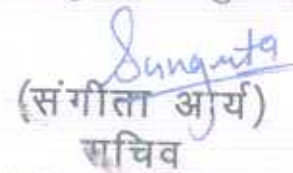 Sungita
(संगीता आर्य)
सचिव